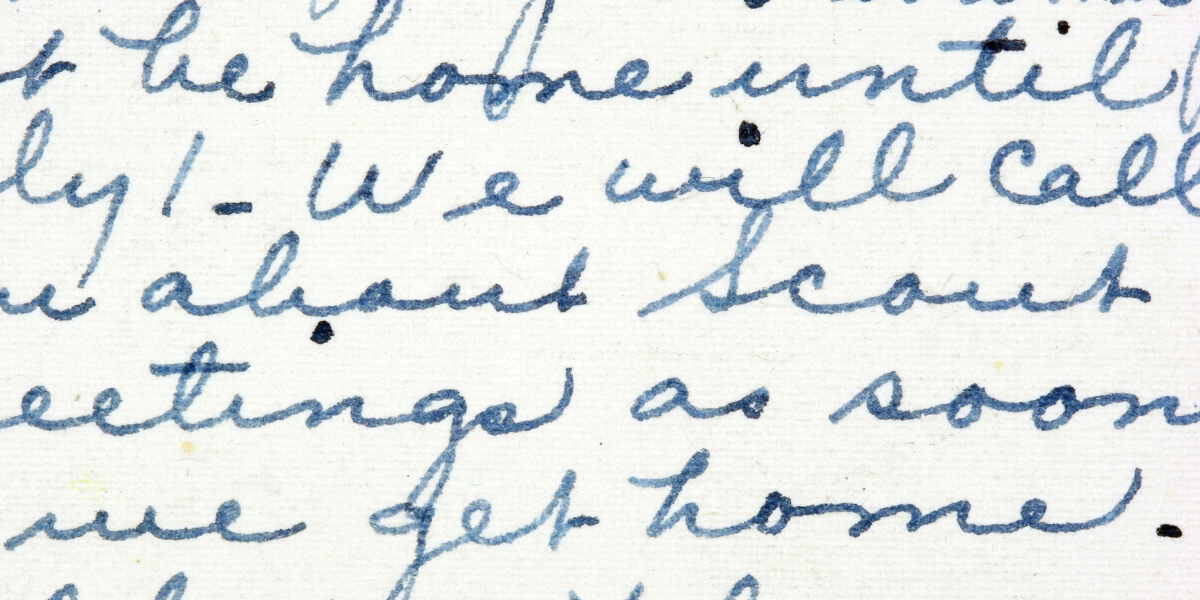 t be home until
ly! - We will call
u about Scout
eetings as soon
we get home.